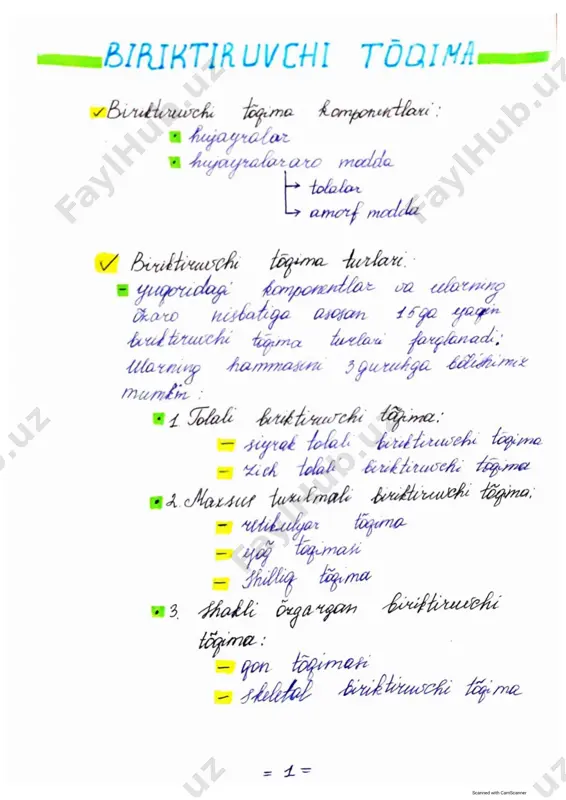 BIRIKTIRUVCHI TŌQIMA
Biriktiruvchi tōqima komponentlari:
hujayralar
hujayralararo modda
tolalar
amorf modda
Biriktiruvchi tōqima turlari:
yuqoridagi komponentlar va ularning
ōzaro nisbatiga asosan 15ga yaqin
biriktiruvchi tōqima turlari farqlanadi;
Ularning hammasini 3 guruhga bōlishimiz
mumkin:
1. Tolali biriktiruvchi tōqima:
– siyrak tolali biriktiruvchi tōqima
– zich tolali biriktiruvchi tōqima
2. Maxsus tuzilmali biriktiruvchi tōqima;
– retikulyar tōqima
– yoğ tōqimasi
– Shilliq tōqima
3. Shakli ōzgargan biriktiruvchi
tōqima:
– qon tōqimasi
– skeletal biriktiruvchi tōqima
= 1 =
Scanned with CamScanner
FaylHub.uz